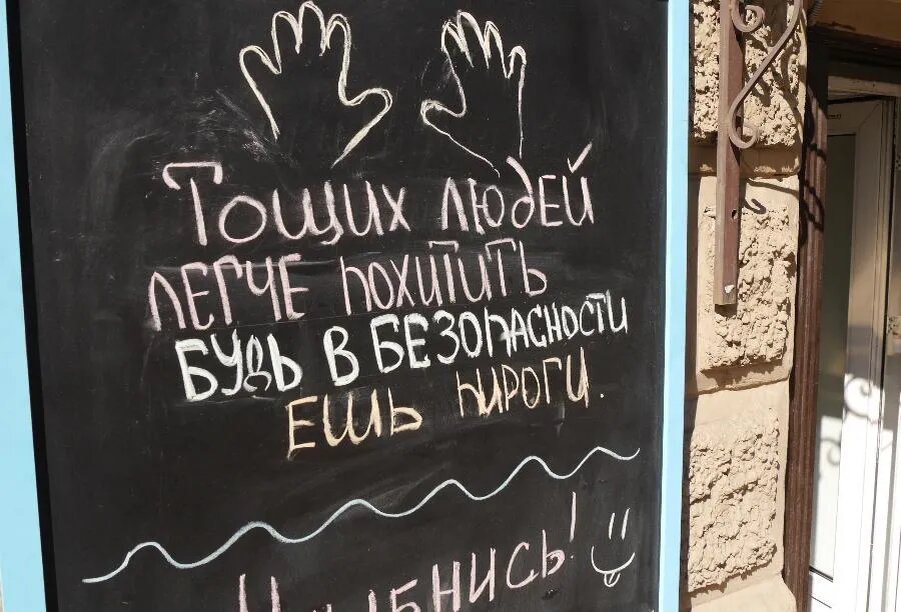 Тощих людей
легче похитить
Будь в безопасности
Ешь пироги.
Улыбнись!